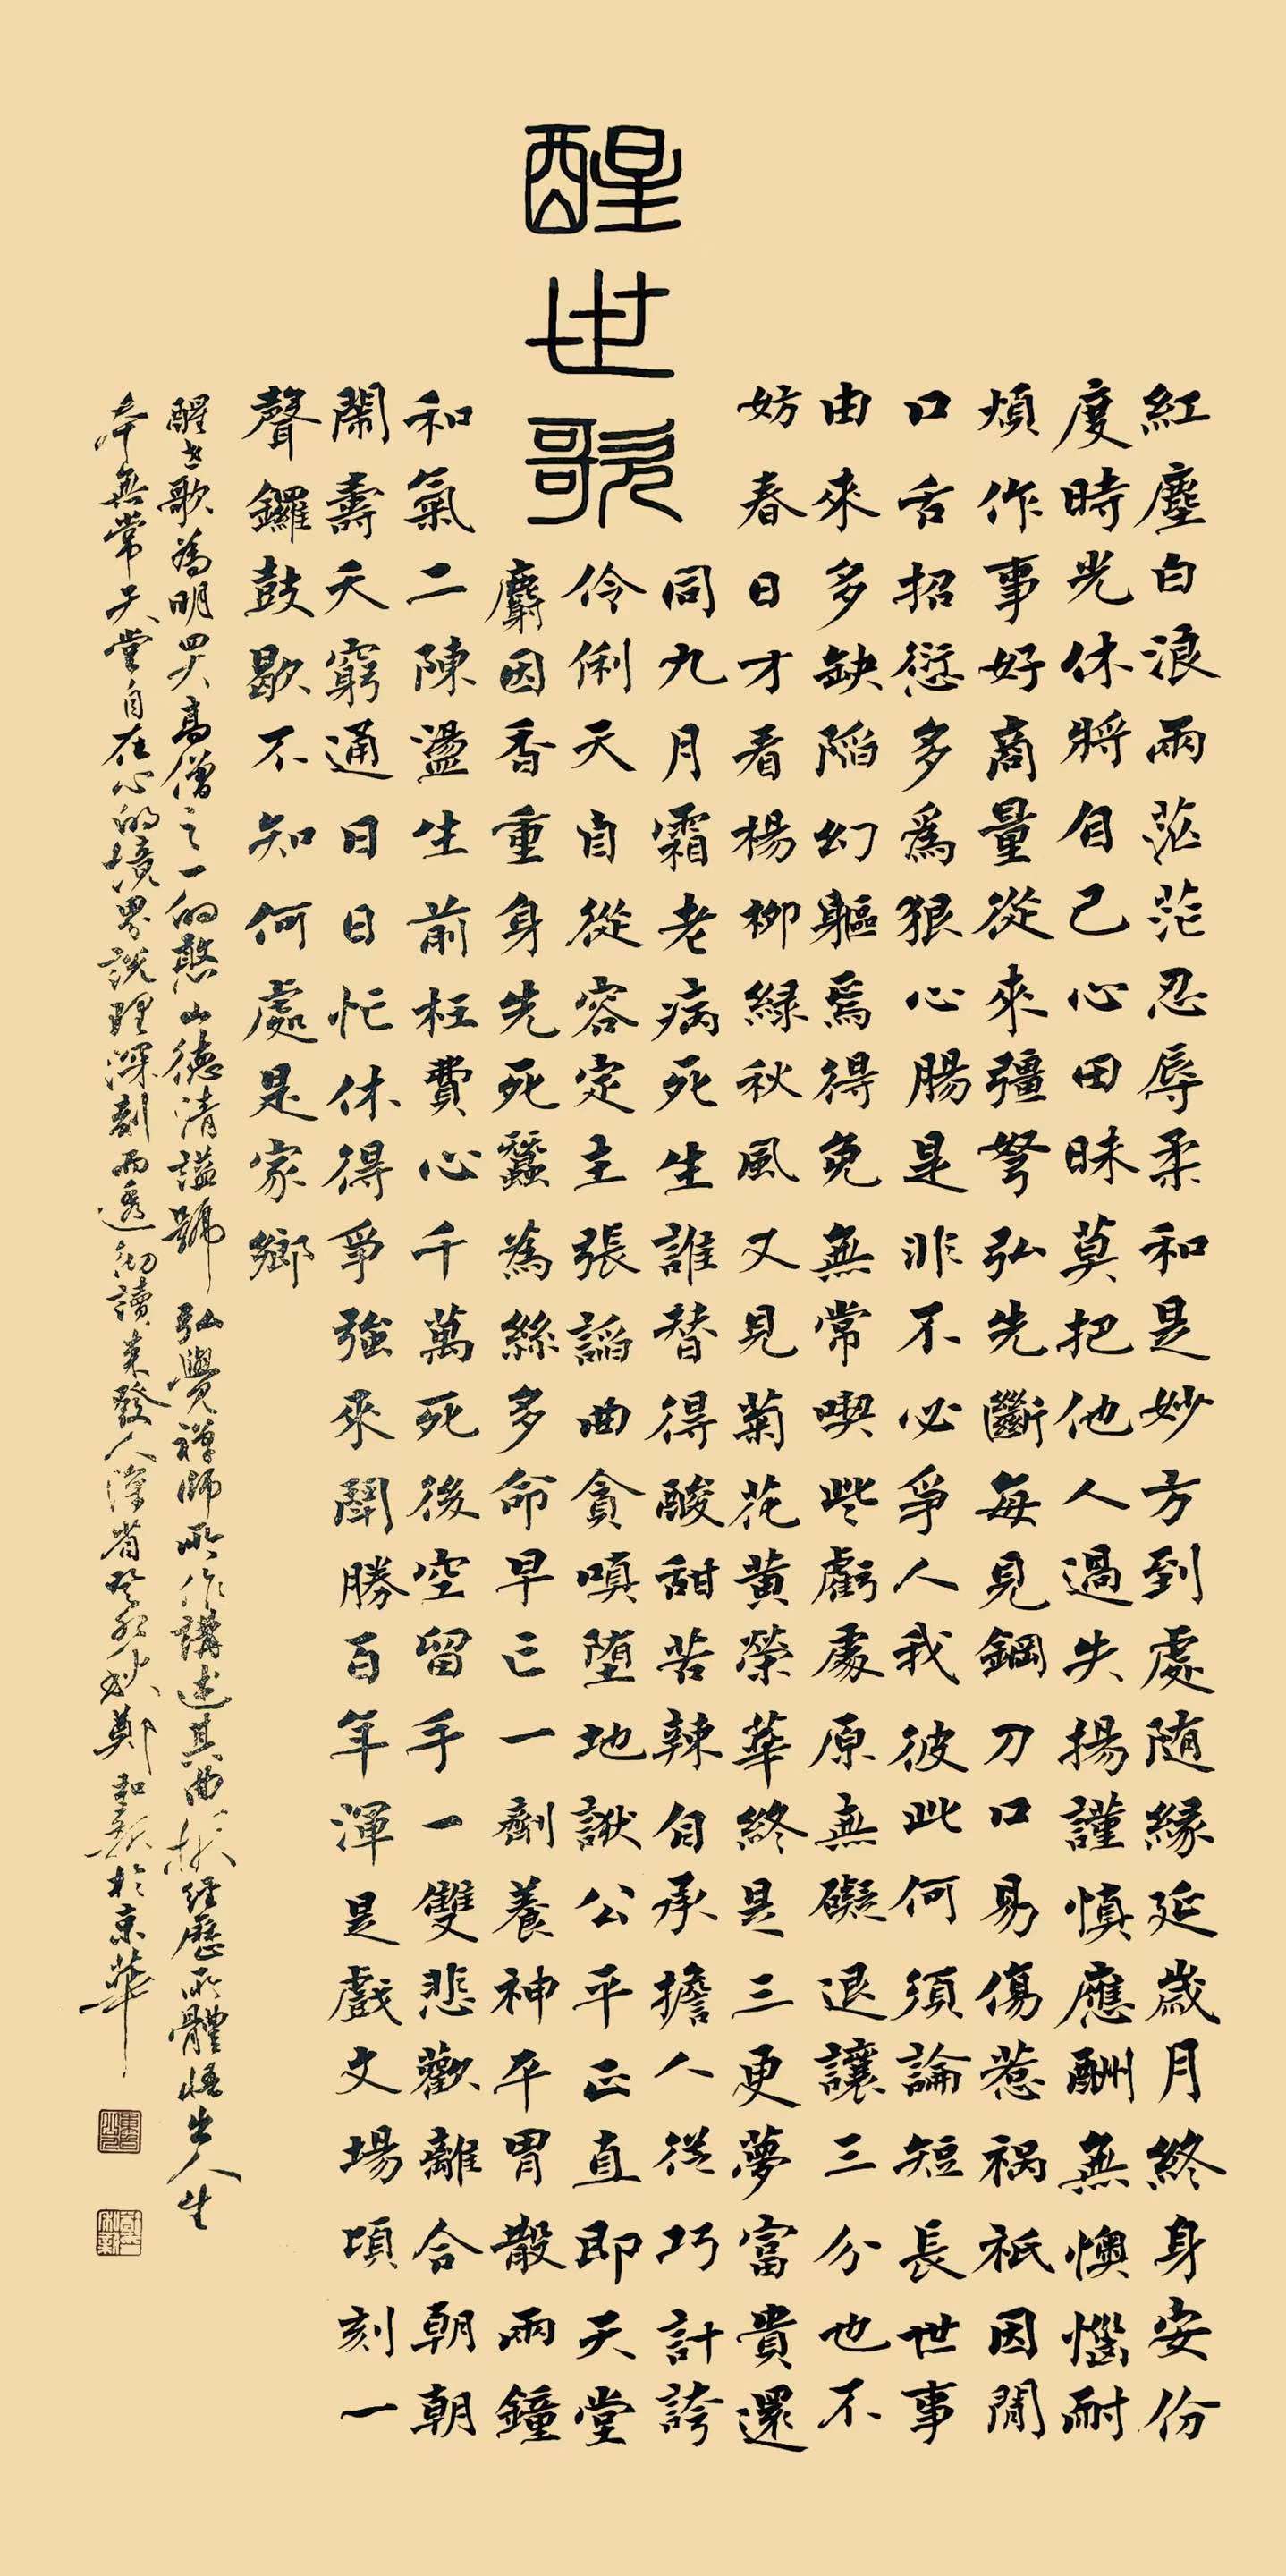 醒世歌
紅塵白浪兩茫茫忍辱柔和是妙方到處随緣延歲月終身安份
度時光休將自己心田昧莫把他人過失揚謹慎應酬無懊惱耐
煩作事好商量從來彊弩弘先斷每見鋼刀口易傷惹禍祇因閒
口舌招愆多為狠心腸是非不必爭人我彼此何須論短長世事
由來多缺陷幻軀焉得免無常喫些虧處原無礙退讓三分也不
妨春日才看楊柳緑秋風又見菊花黄榮華終是三更夢富貴還
同九月霜老病死生誰替得酸甜苦辣自承擔人從巧計誇
伶俐天自從容定主張謟曲貪嗔堕地獄公平正直即天堂
麝因香重身先死蠶為絲多命早亡一劑養神平胃散兩鐘
和氣二陳盪生前枉費心千萬死後空留手一雙悲歡離合朝朝
鬧壽夭窮通日日忙休得爭強來鬪勝百年渾是戲文場頃刻一
聲鑼鼓歇不知何處是家鄉
醒世歌為明四大高僧之一的憨山德清謚號弘覺禪師所作講述其曲折經歷所體悟出人生
本無常天堂自在心的境界説理深刻而透徹讀來發人深省癸卯秋鄭和新於京華